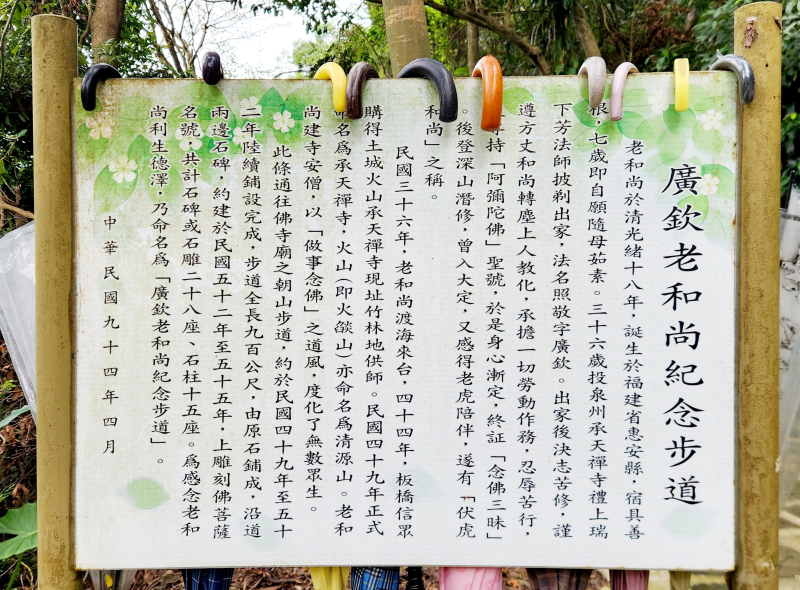 廣欽老和尚紀念步道
老和尚於清光緒十八年，誕生於福建省惠安縣，宿具善
根，七歲即自願隨母茹素。三十六歲投泉州承天禪寺禮上瑞
下芳法師披剃出家，法名照敬字廣欽。出家後決志苦修，謹
遵方丈和尚轉塵上人教化，承擔一切勞動作務，忍辱苦行，
持「阿彌陀佛」聖號，於是身心漸定，終証「念佛三昧」
。後登深山潛修，曾入大定，又感得老虎陪伴，遂有「伏虎
和尚」之稱。
民國三十六年，老和尚渡海來台，四十四年，板橋信眾
購得土城火山承天禪寺現址竹林地供師。民國四十九年正式
命名爲承天禪寺，火山(即火燄山)亦命名爲清源山。老和
尚建寺安僧，以「做事念佛」之道風，度化了無數眾生。
此條通往佛寺廟之朝山步道，約於民國四十九年至五十
二年陸續鋪設完成，步道全長九百公尺，由原石鋪成，沿道
兩邊石碑，約建於民國五十二年至五十五年，上雕刻佛菩薩
名號，共計石碑或石雕二十八座、石柱十五座。爲感念老和
尚利生德澤，乃命名爲「廣欽老和尚紀念步道」。
中華民國九十四年四月